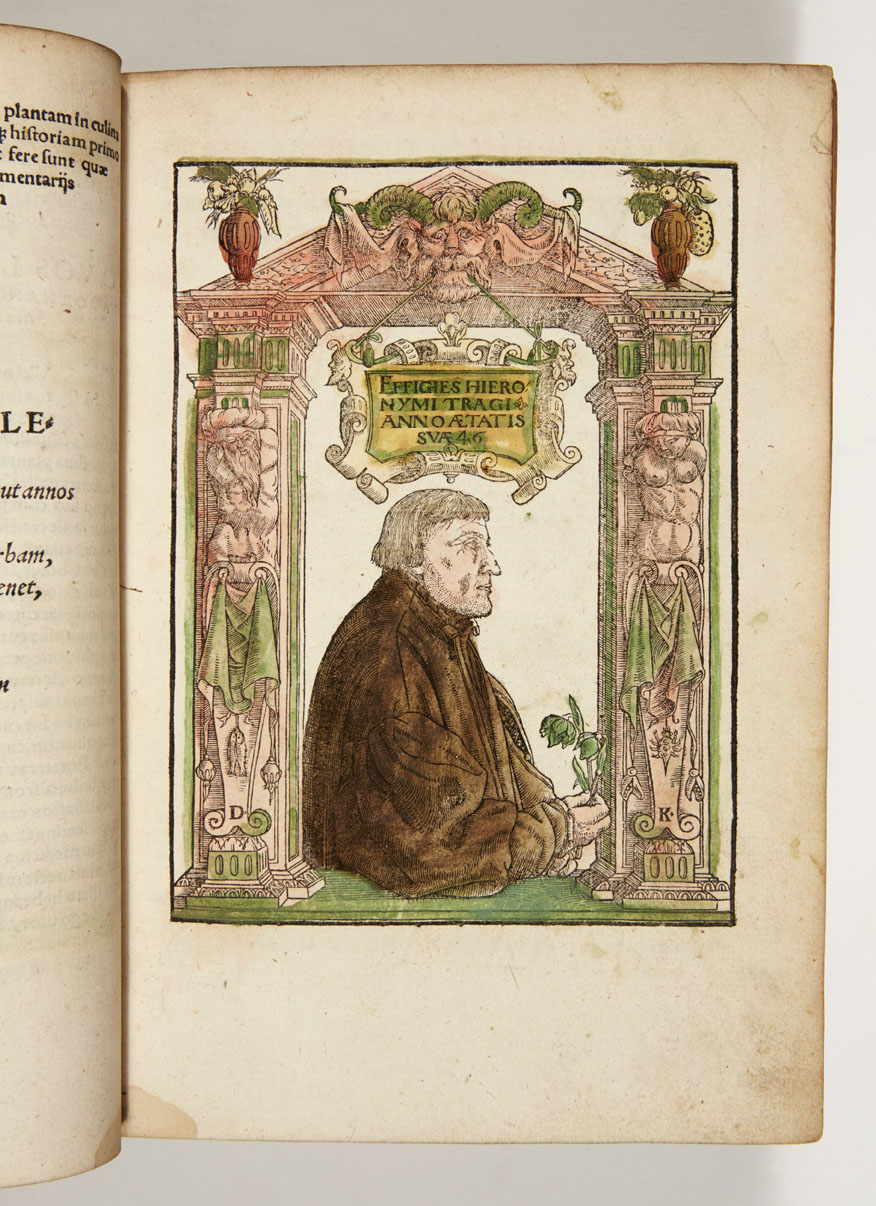 plantam in culina
historiam primo
fere sunt quæ
mentarijs
LE
ut annos
bam,
enet,
EFFIGIES HIERO
NYMI TRAGI
ANNO ÆTATIS
SVÆ 46
D
K.